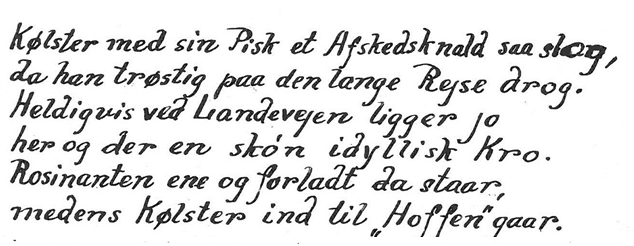 Kølster med sin Pisk et Afskedsknald saa slog,
da han trøstig paa den lange Rejse drog.
Heldigvis ved Landevejen ligger jo
her og der en skøn idyllisk Kro.
Rosinanten ene og forladt da staar,
medens Kølster ind til „Hoffen" gaar.